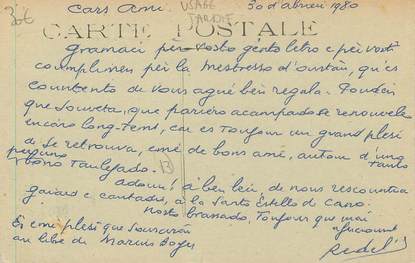 30€
USAGE TARDIF
Cars Ami. 30 d'abrieu 1980
CARTE POSTALE
gramaci per vosto gènto letro e pèr vosti
coumplimen pèr la mestresso d'oustau, qu'es
countento de vous agué bèn regala. Fouden
que Souveta, que pariero acampado se renouvelon
encaro long-tèms, car es toujour un grand plesi
de se retrouva, emé de bons ami, autour d'uno
bono taulejado. pèr uno tauto
B
adounc à bèn lèu, de nous rescountra
gaiard e cantadis, à la Santo Estello de Caro.
nosto brassado, toujour que mai
afeciounad
Es emé plesi que souscrivén
au libre de Marcus Boyer